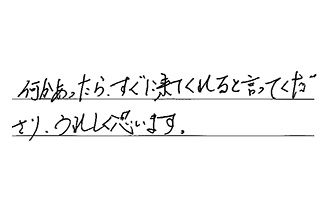 何かあったら、すぐに来てくれると言ってくだ
さり、うれしく思います。